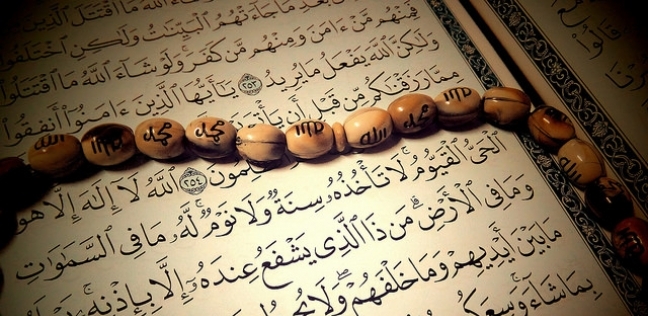 شَآءَ ٱللَّهُ مَا ٱقْتَتَلَ ٱلَّذِينَ
بَعْدِ مَا جَآءَتْهُمُ ٱلْبَيِّنَٰتُ وَلَٰكِنِ ٱخْتَلَفُوا۟
فَمِنْهُم مَّنْ ءَامَنَ وَمِنْهُم مَّن كَفَرَ ۚ وَلَوْ شَآءَ ٱللَّهُ مَا ٱقْتَتَلُوا۟
وَلَٰكِنَّ ٱللَّهَ يَفْعَلُ مَا يُرِيدُ ٢٥٣ يَٰٓأَيُّهَا ٱلَّذِينَ ءَامَنُوٓا۟ أَنفِقُوا۟
مِمَّا رَزَقْنَٰكُم مِّن قَبْلِ أَن يَأْتِىَ
ٱللَّهُ لَآ إِلَٰهَ إِلَّا هُوَ ٢٥٤
ٱلْحَىُّ ٱلْقَيُّومُ ۚ لَا تَأْخُذُهُۥ سِنَةٌ وَلَا نَوْمٌ ۚ لَّهُۥ مَا فِى ٱلسَّمَٰوَٰتِ
وَمَا فِى ٱلْأَرْضِ ۗ مَن ذَا ٱلَّذِى يَشْفَعُ عِندَهُۥٓ إِلَّا بِإِذْنِهِۦ ۚ
مَا بَيْنَ أَيْدِيهِمْ وَمَا خَلْفَهُمْ ۖ وَلَا
بِمَا شَآءَ ۚ وَسِعَ
قَالُوا۟
الله
محمد
محمد
الله
محمد
الله